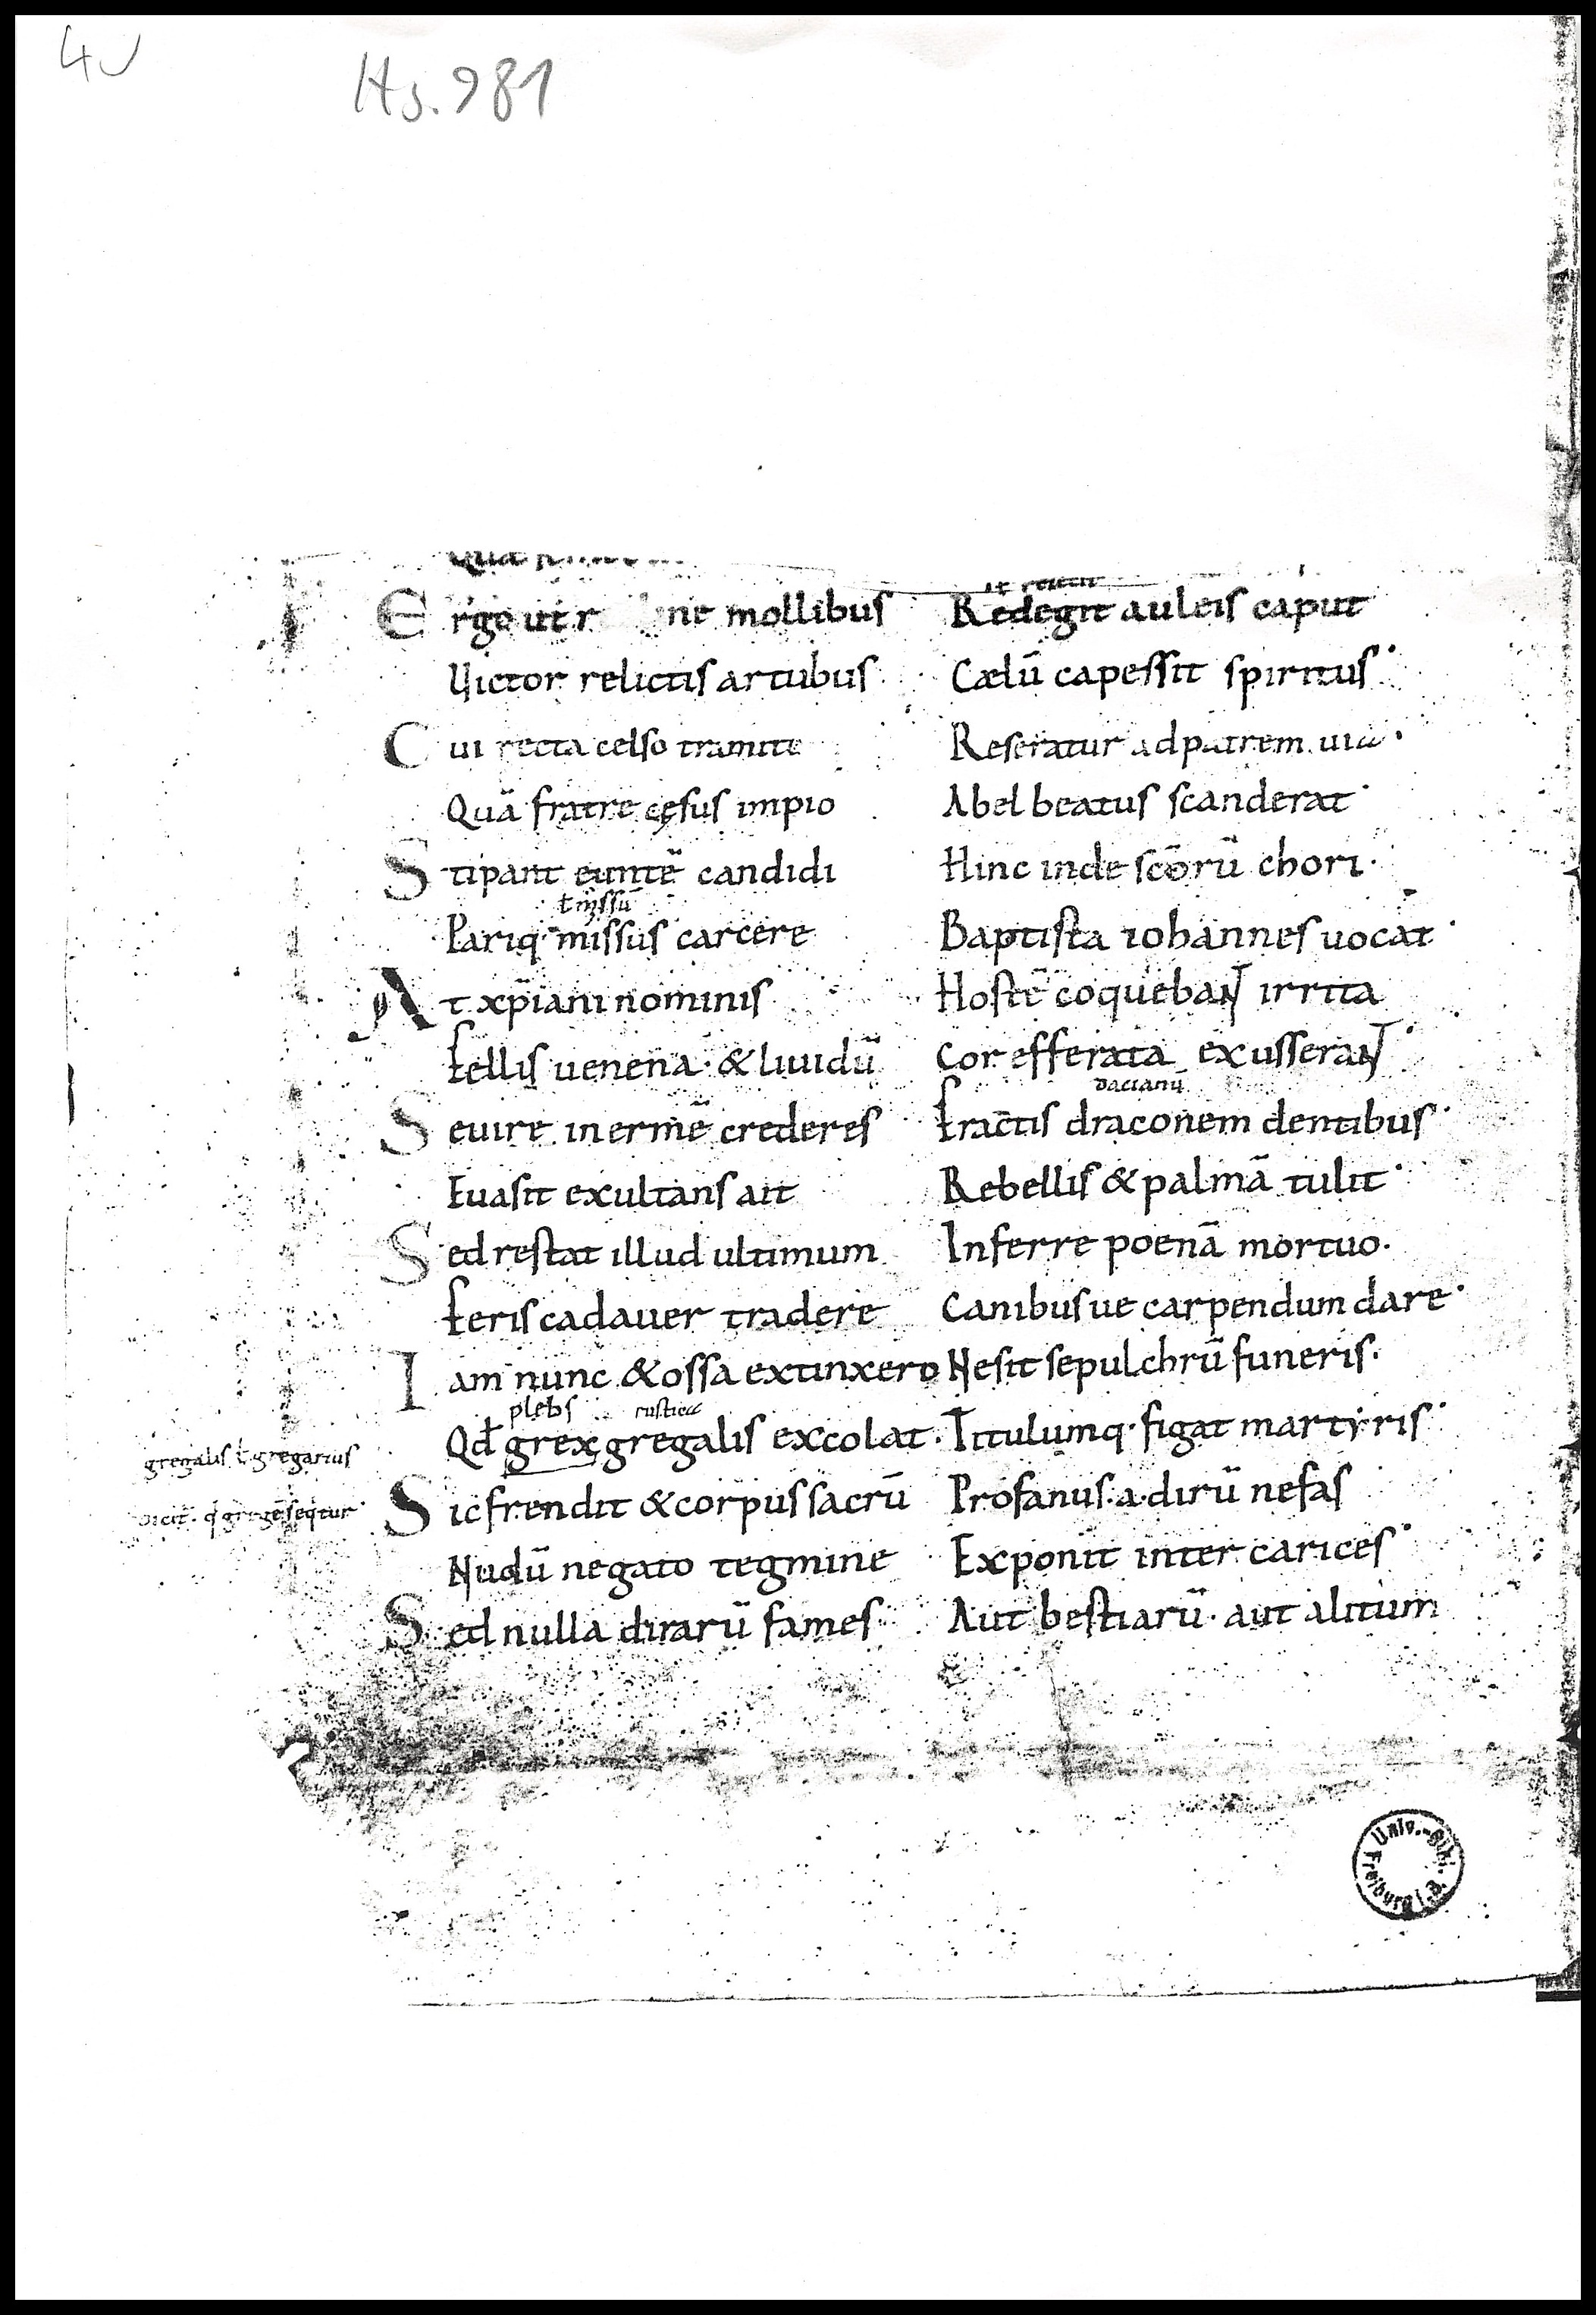 4v
Hs. 981
Ergo ut r ne mollibus Redegit auleis caput
Victor relictis artubus Cælū capessit spiritus·
Cui recta celso tramite Reseratur ad patrem uia·
Quā fratre cęsus impio Abel beatus scanderat·
Stipant euntē candidi Hinc inde scōrū chori·
ł missū
Pariq· missus carcere Baptista iohannes uocat·
At xp̄iani nominis Hostē coquebant irrita
Fellis uenena· & liuidū Cor efferata exusserant·
dacianū
Seuire inermē crederes Fractis draconem dentibus·
Euasit exultans ait Rebellis & palmā tulit·
Sed restat illud ultimum Inferre poenā mortuo·
Feris cadauer tradere Canibusue carpendum dare·
Iam nunc & ossa extinxero Ne sit sepulchrū funeris·
plebs rustica
Qđ grex gregalis excolat· Titulumq· figat martyris·
gregalis ł gregarius
dicit̄· q̇ gregē seq̇tur·
Sic frendit & corpus sacrū Profanus· a· dirū nefas
Nudū negato tegmine Exponit inter carices·
Sed nulla dirarū fames Aut bestiarū· aut alitum
Univ.-Bibl. Freiburg i. B.